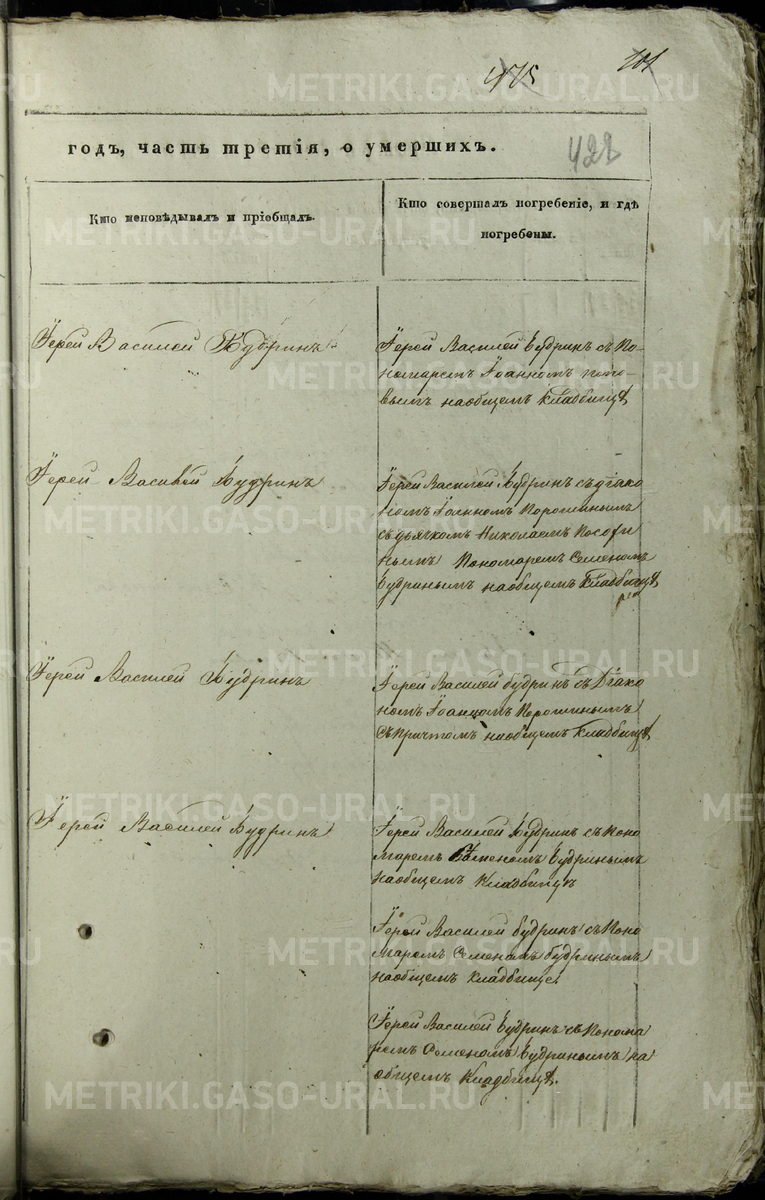 475
101
422
годъ, часть третія, о умершихъ.
Кто исповѣдывалъ и пріобщалъ.
Кто совершалъ погребеніе, и гдѣ
погребены.
Їерей Василей Будринъ
Їерей Василей Будринъ съ По-
номаремъ Їоанномъ Попо-
вымъ наобщемъ кладбищѣ
Їерей Василей Будринъ
Їерей Василей Будринъ съ діако
номъ Їоанномъ Порошинымъ
съ дьячкомъ Николаемъ
нымъ Пономаремъ Семеномъ
Будринымъ наобщемъ Кладбищѣ
Їерей Василей Будринъ
Їерей Василей будринъ съ Діако
номъ Їоанномъ Порошинымъ
съ Причтомъ наобщемъ кладбищѣ
Їерей Василей Будринъ
Їерей Василей Будринъ съ Поно
маремъ Семеномъ Будринымъ
наобщемъ Кладбищѣ
Їерей Василей будринъ съ Поно
маремъ Семеномъ будринымъ
наобщемъ кладбище.
Їерей Василей Будринъ съ Понома
ремъ Семеномъ Будринымъ на
общемъ Кладбищѣ.
METRIKI.GASO-URAL.RU